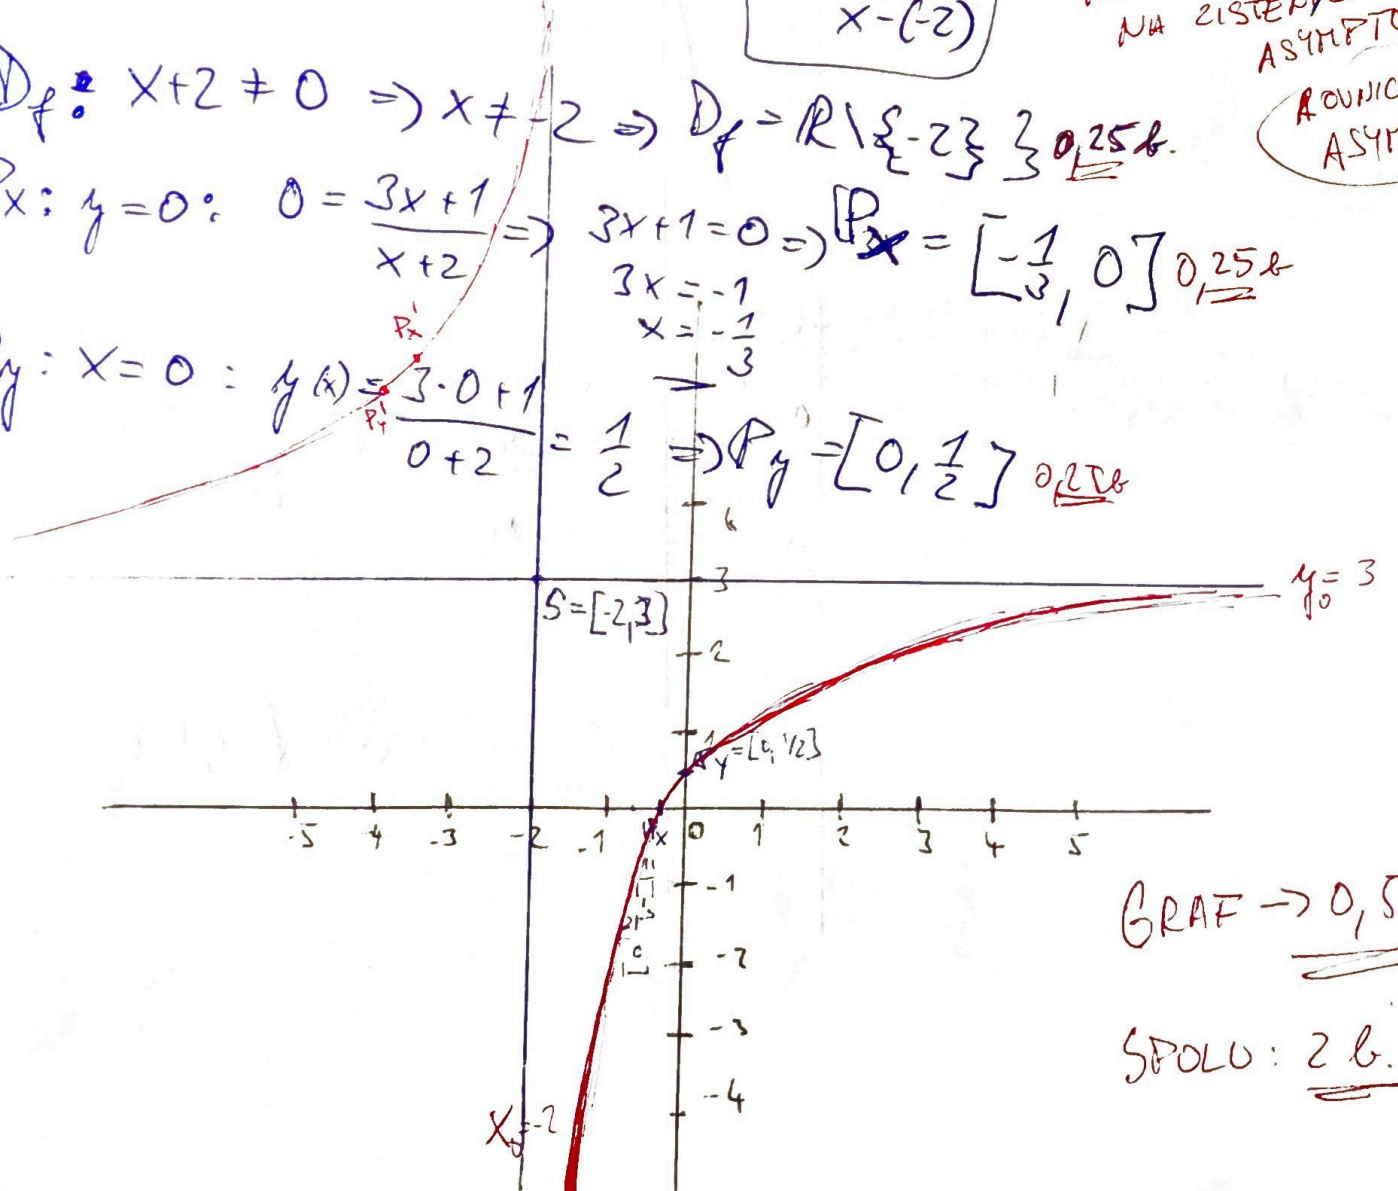 x-(-2)
NA ZISTENI
ASYMPTO
ROVNIC
ASYM
Df: x+2 ≠ 0 => x ≠ -2 => Df = R\{-2} } 0,25 b.
Px: y=0: 0 = (3x+1)/(x+2) => 3x+1=0 => Px = [-1/3, 0] 0,25 b
3x = -1
x = -1/3
Px'
y: x=0: y(x) = (3·0+1)/(0+2) = 1/2 => Py = [0, 1/2] 0,25 b
Py'
3
y0 = 3
S=[-2,3]
2
1
Py=[0, 1/2]
-5 -4 -3 -2 -1 0 1 2 3 4 5
Px = [-1/3, 0]
-1
-2
-3
-4
GRAF -> 0,5
SPOLU: 2 b.
x0=-2